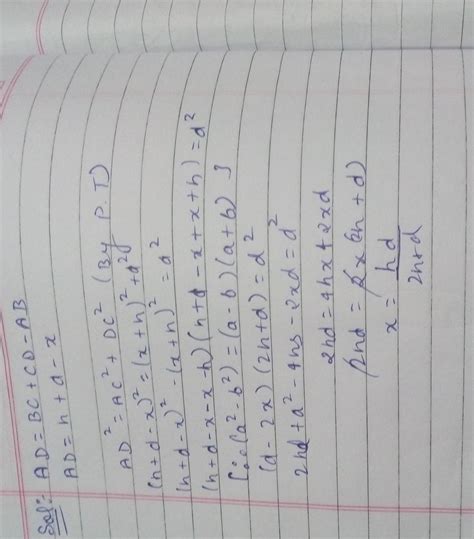 Sol:- AD = BC + CD - AB
AD = h + d - x
AD² = AC² + DC² (By P.T)
(h + d - x)² = (x + h)² + d²
(h + d - x)² - (x + h)² = d²
(h + d - x - x - h) (h + d - x + x + h) = d²
[∵ (a² - b²) = (a - b) (a + b) ]
(d - 2x) (2h + d) = d²
2hd + d² - 4hx - 2xd = d²
2hd = 4hx + 2xd
2hd = 2x (2h + d)
x = hd / 2h + d